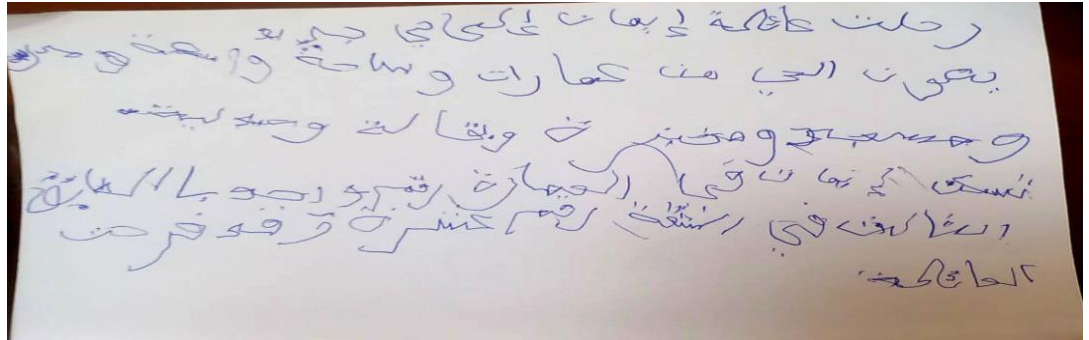 رحلت عائلة إيمان إلى حي جديد
يتكون الحي من عمارات وساحة واسعة
ومسجد ومخبزة وبقالة وصيدلية
تسكن إيمان في العمارة رقم بالطابق
الثالث في الشقة رقم عشرة وقد فرحت
العائلة